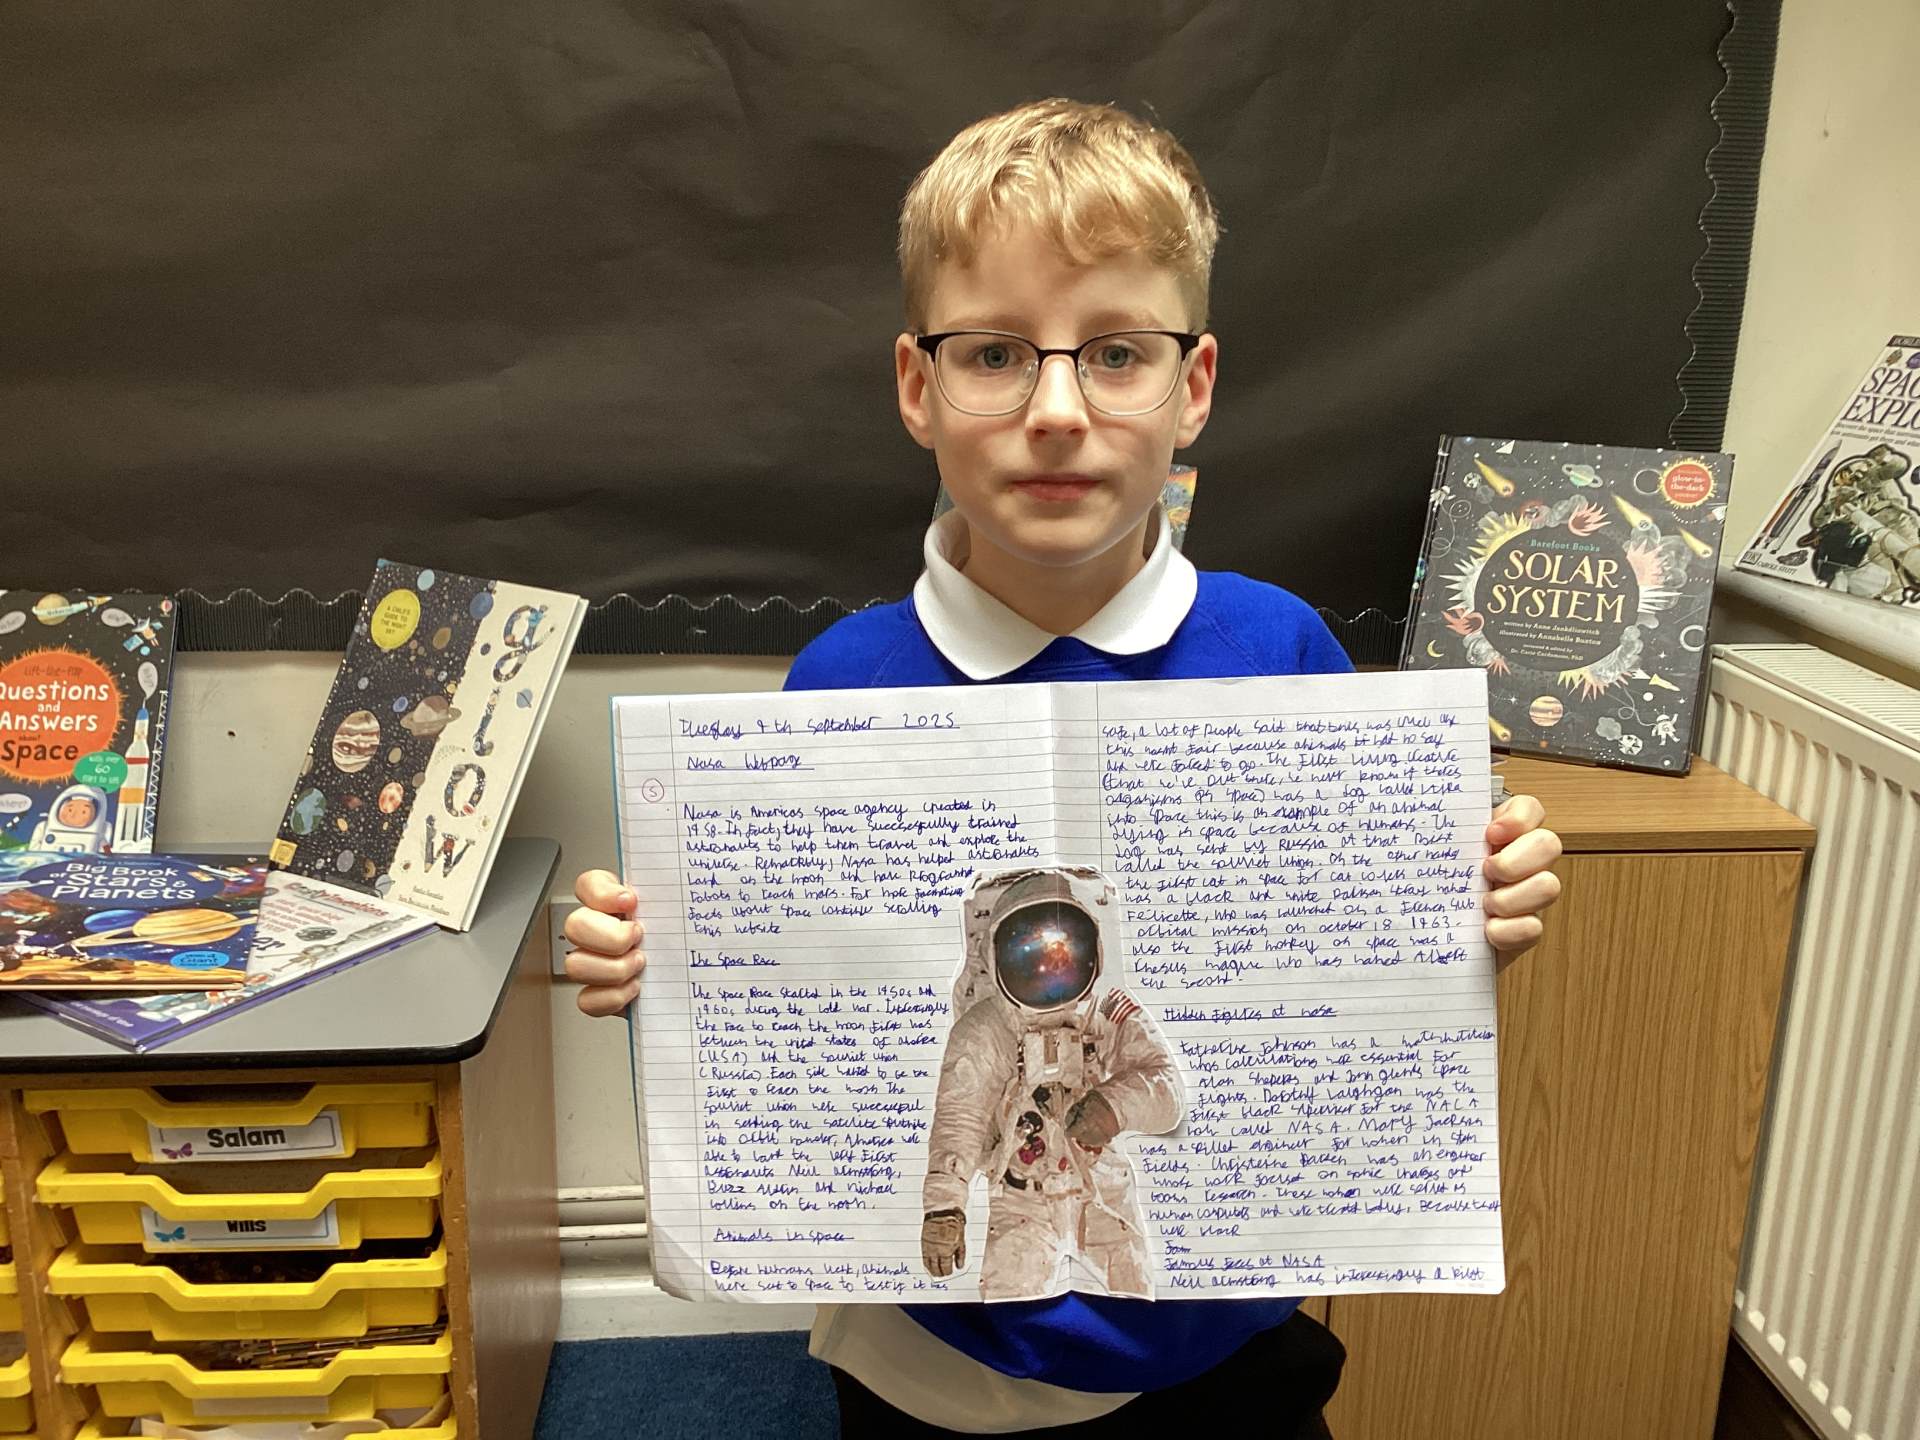 Tuesday 9th September 2025
Nasa Webpage
5
Nasa is Americas space agency created in
1958. In fact, they have successfully trained
astronauts to help them travel and explore the
universe. Remarkably, Nasa has helped astronauts
land on the moon and have programed
robots to reach mars. For more fascinating
facts about space continue scrolling
this website
The Space Race
The Space Race started in the 1950s and
1960s during the cold war. Interestingly
the race to reach the moon first was
between the united states of
(USA) and the souviet union
(Russia). Each side wanted to be the
first to reach the moon The
souviet union were successful
in sending the satellite
into orbit however, America were
able to land the very first
astronauts Neil armstrong,
Buzz Aldrin and michael
collins on the moon.
Animals in space
Before humans went, animals
were sent to space to test if it was
safe, a lot of people said that this was cruel and
this wasnt fair because animals had no say
and were forced to go. The first living creature
(that we've put there, we never know if theres
organisms in space) was a dog called
into space this is an example of an animal
dying in space because of humans. The
dog was sent by Russia at that point
called the souviet union. On the other hand
the first cat in space for cat lovers out there
was a black and white Parisian stray named
Felicette, who was launched on a French sub
orbital mission on october 18 1963.
also the first monkey in space was a
rhesus maque who was named Albert
the second.
Hidden figures at nasa
Katherine Johnson was a
whos calculations were essential for
Alan Sheperds and John glenns space
flights. Dorothy Vaughgan was the
first black supervisor for the NACA
now called NASA. Mary Jackson
was a skilled engineer for women in stem
fields. Christerine Darden was an engineer
whose work focused on sonic charges and
booms research. These women were served as
human computers and were treated badly, because they
were black
Fam
Famous faces at NASA
Neil armstrong was interestingly a pilot
Lift-the-Flap
Questions
and
Answers
about
Space
with over
60
flaps to lift
Usborne
A CHILD'S
GUIDE TO
THE NIGHT
SKY
glow
The Usborne
Big Book
of Stars &
Planets
4
Giant
Salam
Wills
glow-in-
the-dark
Barefoot Books
SOLAR
SYSTEM
written by Anne Jankéliowitch
illustrated by Annabelle Buxton
Dr. Carie Cardamone, PhD
DK
CAROLE STOTT